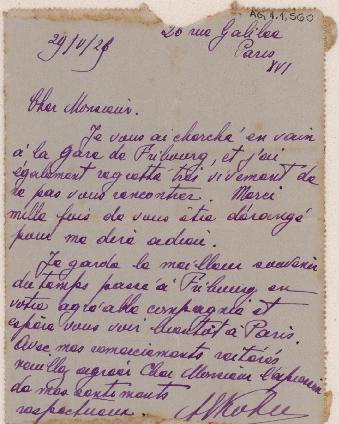 AG.1.1,560
29/V/28
20 rue Galilée
Paris
XVI
Cher Monsieur.
Je vous ai cherché en vain
à la Gare de Fribourg, et j'ai
également regretté très vivement de
ne pas vous rencontrer. Merci
mille fois de vous être dérangé
pour me dire adieu.
Je garde le meilleur souvenir
du temps passé à Fribourg en
votre agréable compagnie et
espère vous voir bientôt à Paris.
Avec mes remerciements réitérés
veuillez agréer Cher Monsieur l'expression
de mes sentiments
respectueux.